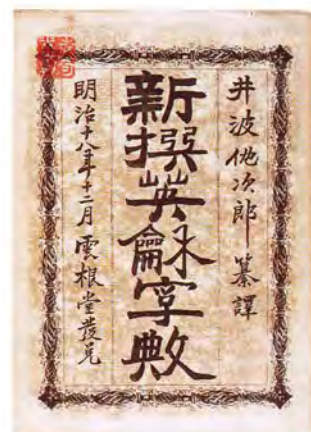 井波他次郎 纂譯
新撰英龢字敟
明治十八年十二月 雲根堂發兌